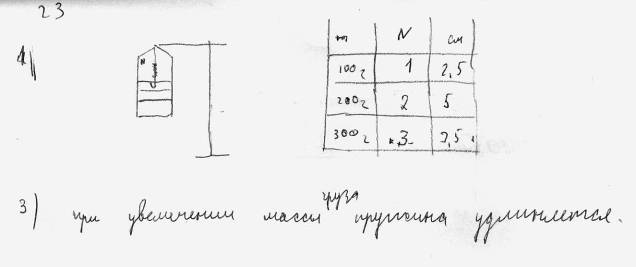 23
1)
m N см
100г 1 2,5
200г 2 5
300г 3 7,5
3) при увеличении массы груза пружина удлиняется.